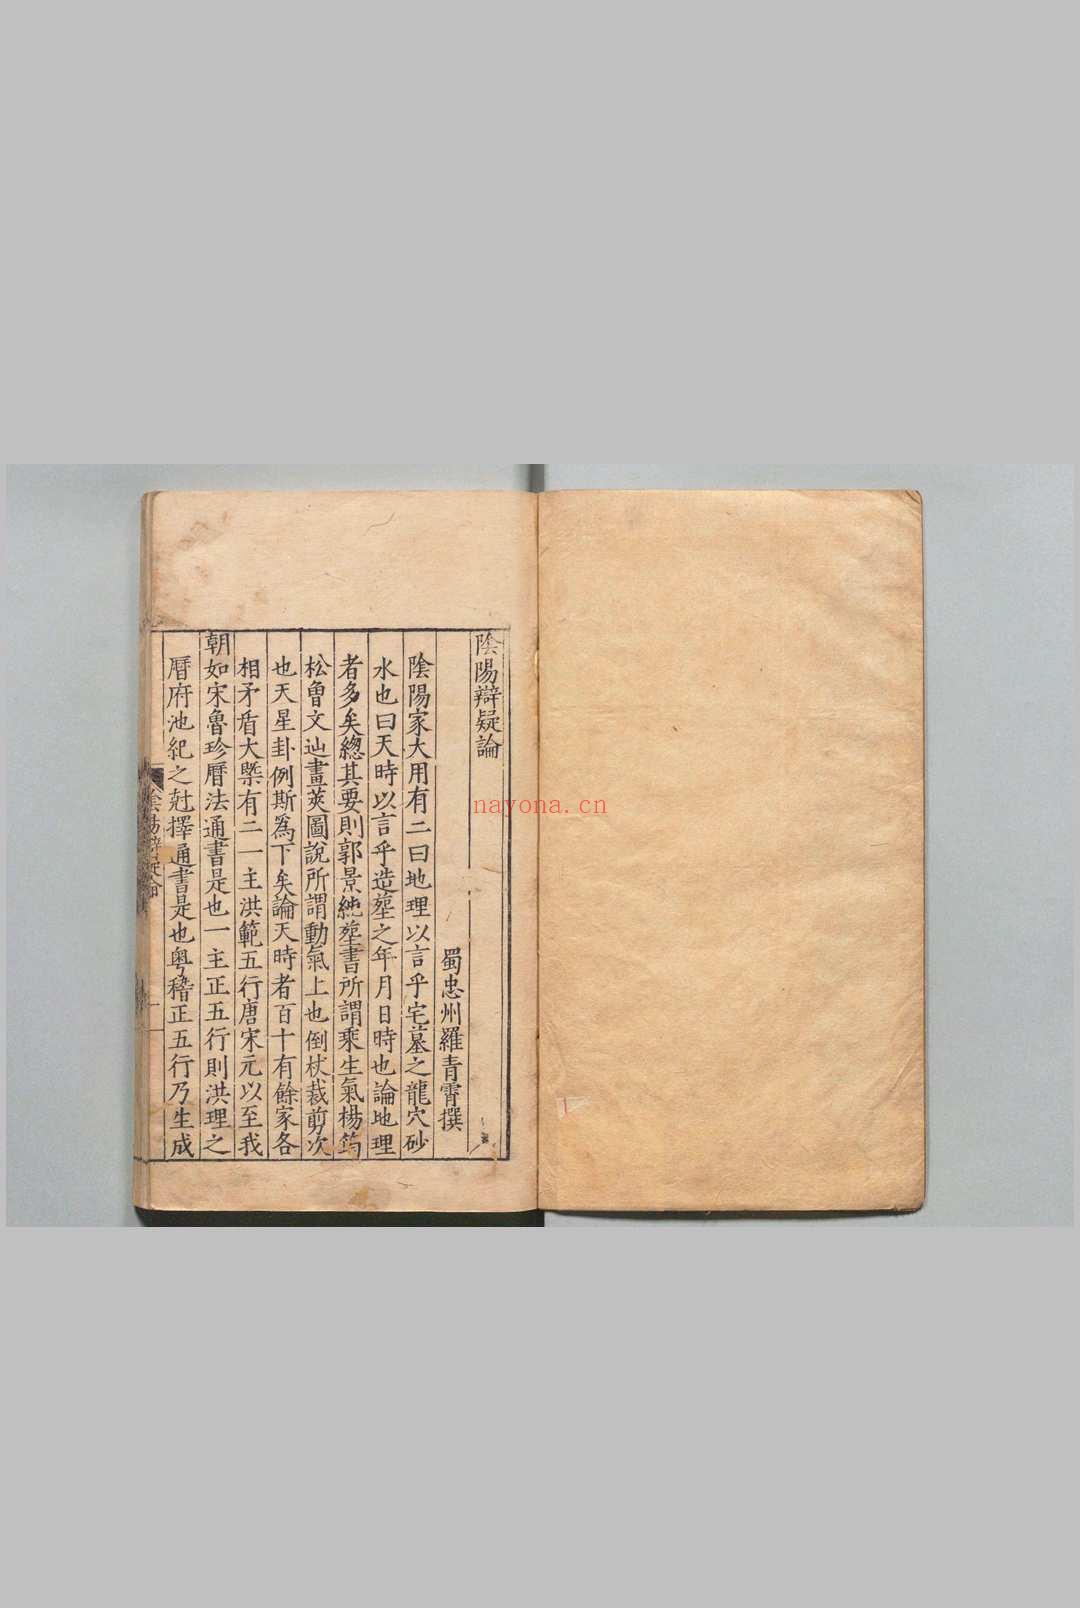 陰陽辯疑論
蜀忠州羅青霄撰
陰陽家大用有二曰地理以言乎宅墓之龍穴砂
水也曰天時以言乎造塟之年月日時也論地理
者多矣總其要則郭景純塟書所謂乘生氣楊筠
松曾文辿畫莢圖說所謂動氣上也倒杖裁剪次
也天星卦例斯爲下矣論天時者百十有餘家各
相矛盾大槩有二一主洪範五行唐宋元以至我
朝如宋魯珍曆法通書是也一主正五行則洪理之
曆府池紀之尅擇通書是也粤稽正五行乃生成
nayona.cn